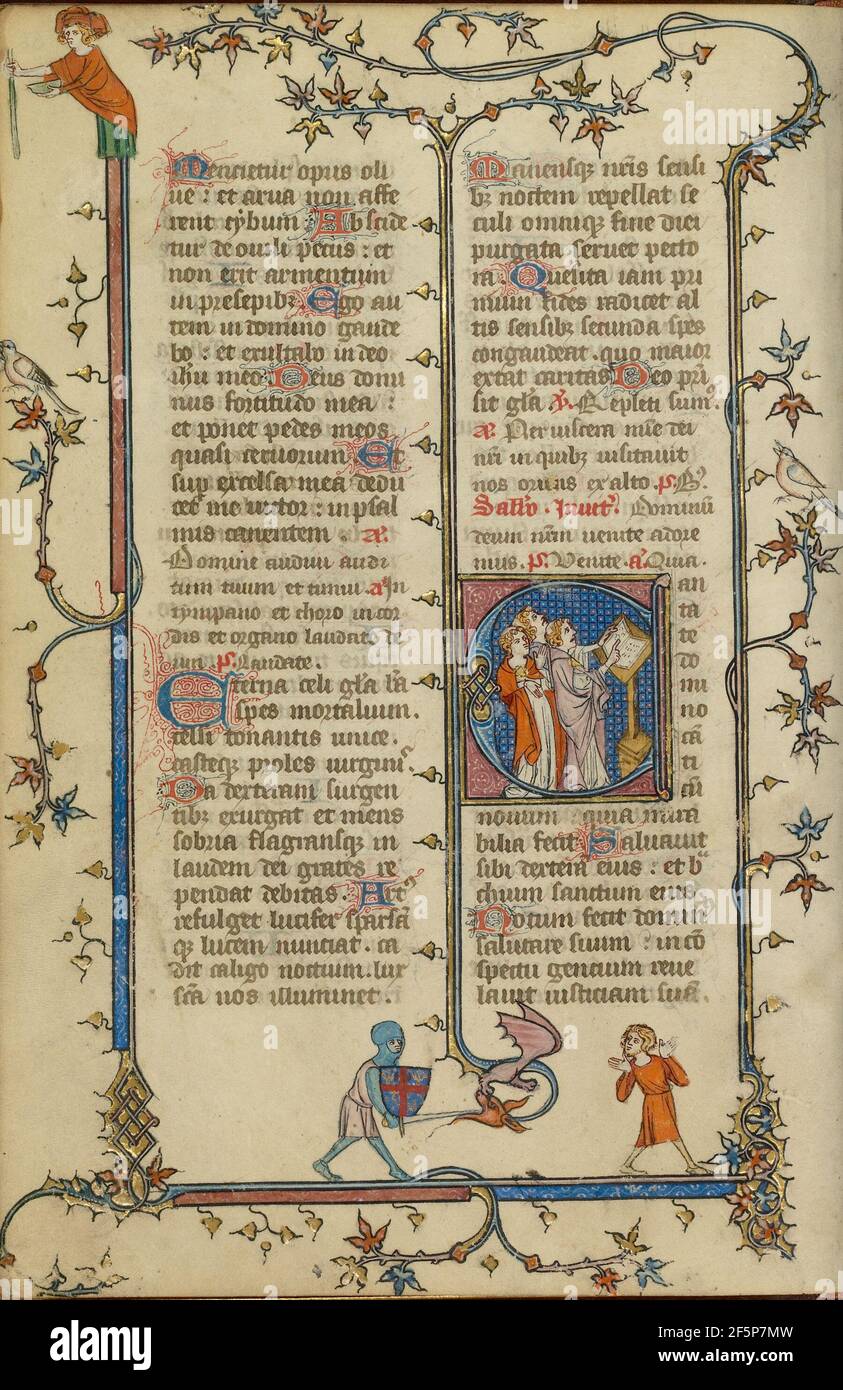 Mencietur opus oli
ue : et arua non affe
rent cybum. Abscide
tur de ouili pecus : et
non erit armentum
in presepibȝ. Ego au
tem in domino gaude
bo : et exultabo in deo
ihu meo. Deus domi
nus fortitudo mea :
et ponet pedes meos
quasi ceruorum. Et
sup excelsa mea dedu
cet me uictor : in psal
mis canentem. a.
Domine audiui audi
tum tuum et timui. a. In
tympano et choro in cor
dis et organo laudate de
um. ps. Laudate.
Eterna celi gła bāa
spes mortalium.
celsi tonantis unice.
casteqȝ proles uirginis.
Da dexteram surgen
tibȝ exurgat et mens
sobria flagransqȝ in
laudem dei grates re
pendat debitas. Ort9
refulget lucifer sparsā
qȝ lucem nunciat. ca
dit caligo noctium. lux
scā nos illuminet.
Manensqȝ nr̄is sensi
bȝ noctem repellat se
culi omniqȝ fine diei
purgata seruet pecto
ra. Quesita iam pri
mum fides radicet al
tis sensibȝ secunda spes
congaudeat. quo maior
extat caritas. Deo pr̄i
sit gła. V. Repleti sum9.
a. Per uiscera mīe dei
nr̄i in quibȝ uisitauit
nos oriens ex alto. ps. B9.
Sabbo. Inuit. Dominū
deum nr̄m uenite adore
mus. ps. Venite. a. Quia.
Can
ta
te
do
mi
no
cā
ti
cū
nouum : quia mira
bilia fecit. Saluauit
sibi dextera eius : et b
chium sanctum eius.
Notum fecit domin9
salutare suum : in cō
spectu gencium reue
lauit iusticiam suā.
alamy
Image ID: 2F5P7MW
www.alamy.com